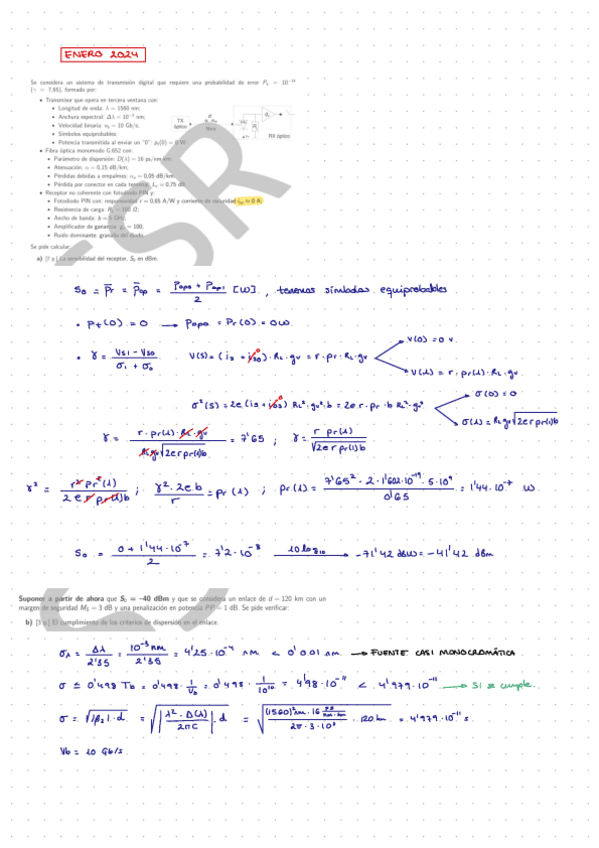 ENERO 2024
Se considera un sistema de transmisión digital que requiere una probabilidad de error Pₑ = 10⁻¹⁴
(γ = 7,65), formado por:
• Transmisor que opera en tercera ventana con:
• Longitud de onda: λ = 1560 nm;
• Anchura espectral: Δλ = 10⁻³ nm;
• Velocidad binaria: v_b = 10 Gb/s;
• Símbolos equiprobables;
• Potencia transmitida al enviar un "0": p_t(0) = 0 W.
TX óptico
Fibra
RX óptico
• Fibra óptica monomodo G.652 con:
• Parámetro de dispersión: D(λ) = 16 ps/nm·km;
• Atenuación: α = 0,15 dB/km;
• Pérdidas debidas a empalmes: αₑ = 0,05 dB/km;
• Pérdida por conector en cada terminal: L_c = 0,75 dB.
• Receptor no coherente con fotodiodo PIN y:
• Fotodiodo PIN con: responsividad r = 0,65 A/W y corriente de oscuridad i_os ≈ 0 A;
• Resistencia de carga: R_L = 100 Ω;
• Ancho de banda: b = 5 GHz;
• Amplificador de ganancia: g_v = 100;
• Ruido dominante: granalla del diodo.
Se pide calcular:
a) [7 p.] La sensibilidad del receptor, S₀ en dBm.
S₀ = p̄r = p̄op = (Pop0 + Pop1)/2 [W] , tenemos símbolos equiprobables
• Pt(0) = 0 → Pop0 = Pr(0) = 0W.
• γ = (Vs1 - Vs0)/(σ1 + σ0) V(s) = (is + ios) · RL · gv = r · pr · RL · gv
V(0) = 0 V.
V(1) = r · pr(1) · RL · gv
σ²(s) = 2e (is + ios) RL² · gv² · b = 2e r · pr · b RL² · gv²
σ(0) = 0
σ(1) = RL gv √(2e r pr(1) b)
γ = (r · pr(1) · RL · gv)/(RL gv √(2e r pr(1) b)) = 7'65 ; γ = (r pr(1))/√(2e r pr(1) b)
γ² = (r² pr²(1))/(2 e r pr(1) b) ; (γ² · 2e b)/r = pr(1) ; pr(1) = (7'65² · 2 · 1'602·10⁻¹⁹ · 5·10⁹)/0'65 = 1'44·10⁻⁷ W.
S₀ = (0 + 1'44·10⁻⁷)/2 = 7'2·10⁻⁸ 10log₁₀ → -71'42 dBW = -41'42 dBm
Suponer a partir de ahora que S₀ = −40 dBm y que se considera un enlace de d = 120 km con un
margen de seguridad M_S = 3 dB y una penalización en potencia PP = 1 dB. Se pide verificar:
b) [3 p.] El cumplimiento de los criterios de dispersión en el enlace.
σλ = Δλ/2'35 = 10⁻³ nm/2'35 = 4'25·10⁻⁴ nm < 0'001 nm → FUENTE CASI MONOCROMÁTICA
σ ≤ 0'498 Tb = 0'498 · 1/Vb = 0'498 · 1/10¹⁰ = 4'98·10⁻¹¹ < 4'979·10⁻¹¹ → Si se cumple.
σ = √(|β2| · d) = √(|λ² · D(λ)/2πc| · d) = √((1560)² nm · 16 ps/nm·km/2π · 3·10⁸ · 120 km) = 4'979·10⁻¹¹ s
Vb = 10 Gb/s.